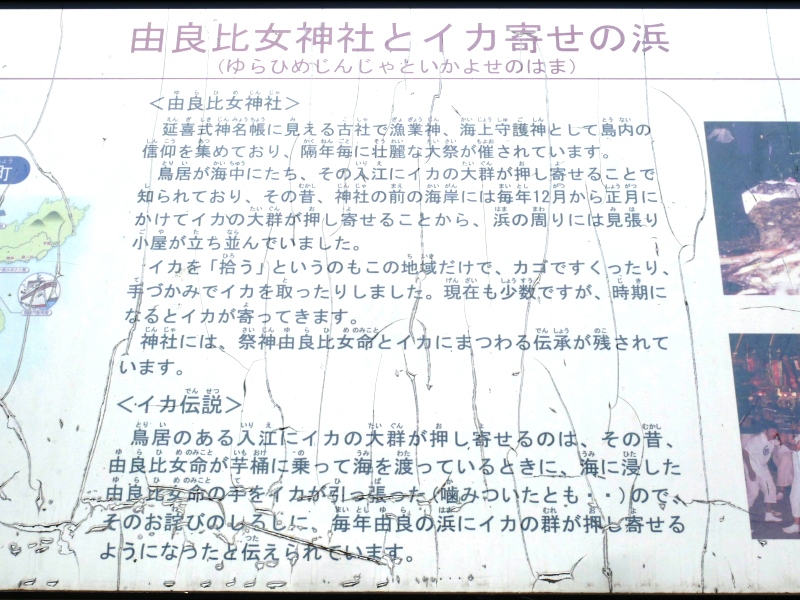 由良比女神社とイカ寄せの浜
(ゆらひめじんじゃといかよせのはま)
＜由良比女神社＞
延喜式神名帳に見える古社で漁業神、海上守護神として島内の
信仰を集めており、隔年毎に壮麗な大祭が催されています。
鳥居が海中にたち、その入江にイカの大群が押し寄せることで
知られており、その昔、神社の前の海岸には毎年12月から正月に
かけてイカの大群が押し寄せることから、浜の周りには見張り
小屋が立ち並んでいました。
イカを「拾う」というのもこの地域だけで、カゴですくったり、
手づかみでイカを取ったりしました。現在も少数ですが、時期に
なるとイカが寄ってきます。
神社には、祭神由良比女命とイカにまつわる伝承が残されて
います。
＜イカ伝説＞
鳥居のある入江にイカの大群が押し寄せるのは、その昔、
由良比女命が芋桶に乗って海を渡っているときに、海に浸した
由良比女命の手をイカが引っ張った(噛みついたとも・・)ので、
そのお詫びのしるしに、毎年由良の浜にイカの群が押し寄せる
ようになったと伝えられています。
町